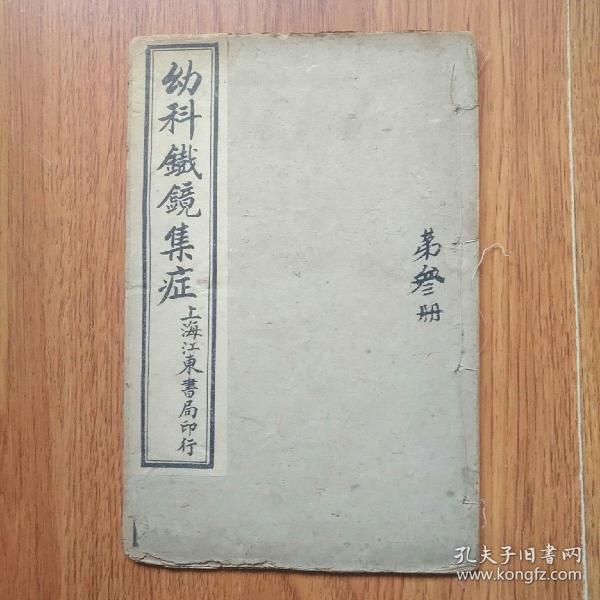 幼科鐵鏡集症
上海江東書局印行
第叄册
孔夫子旧書网
www.kongfz.com